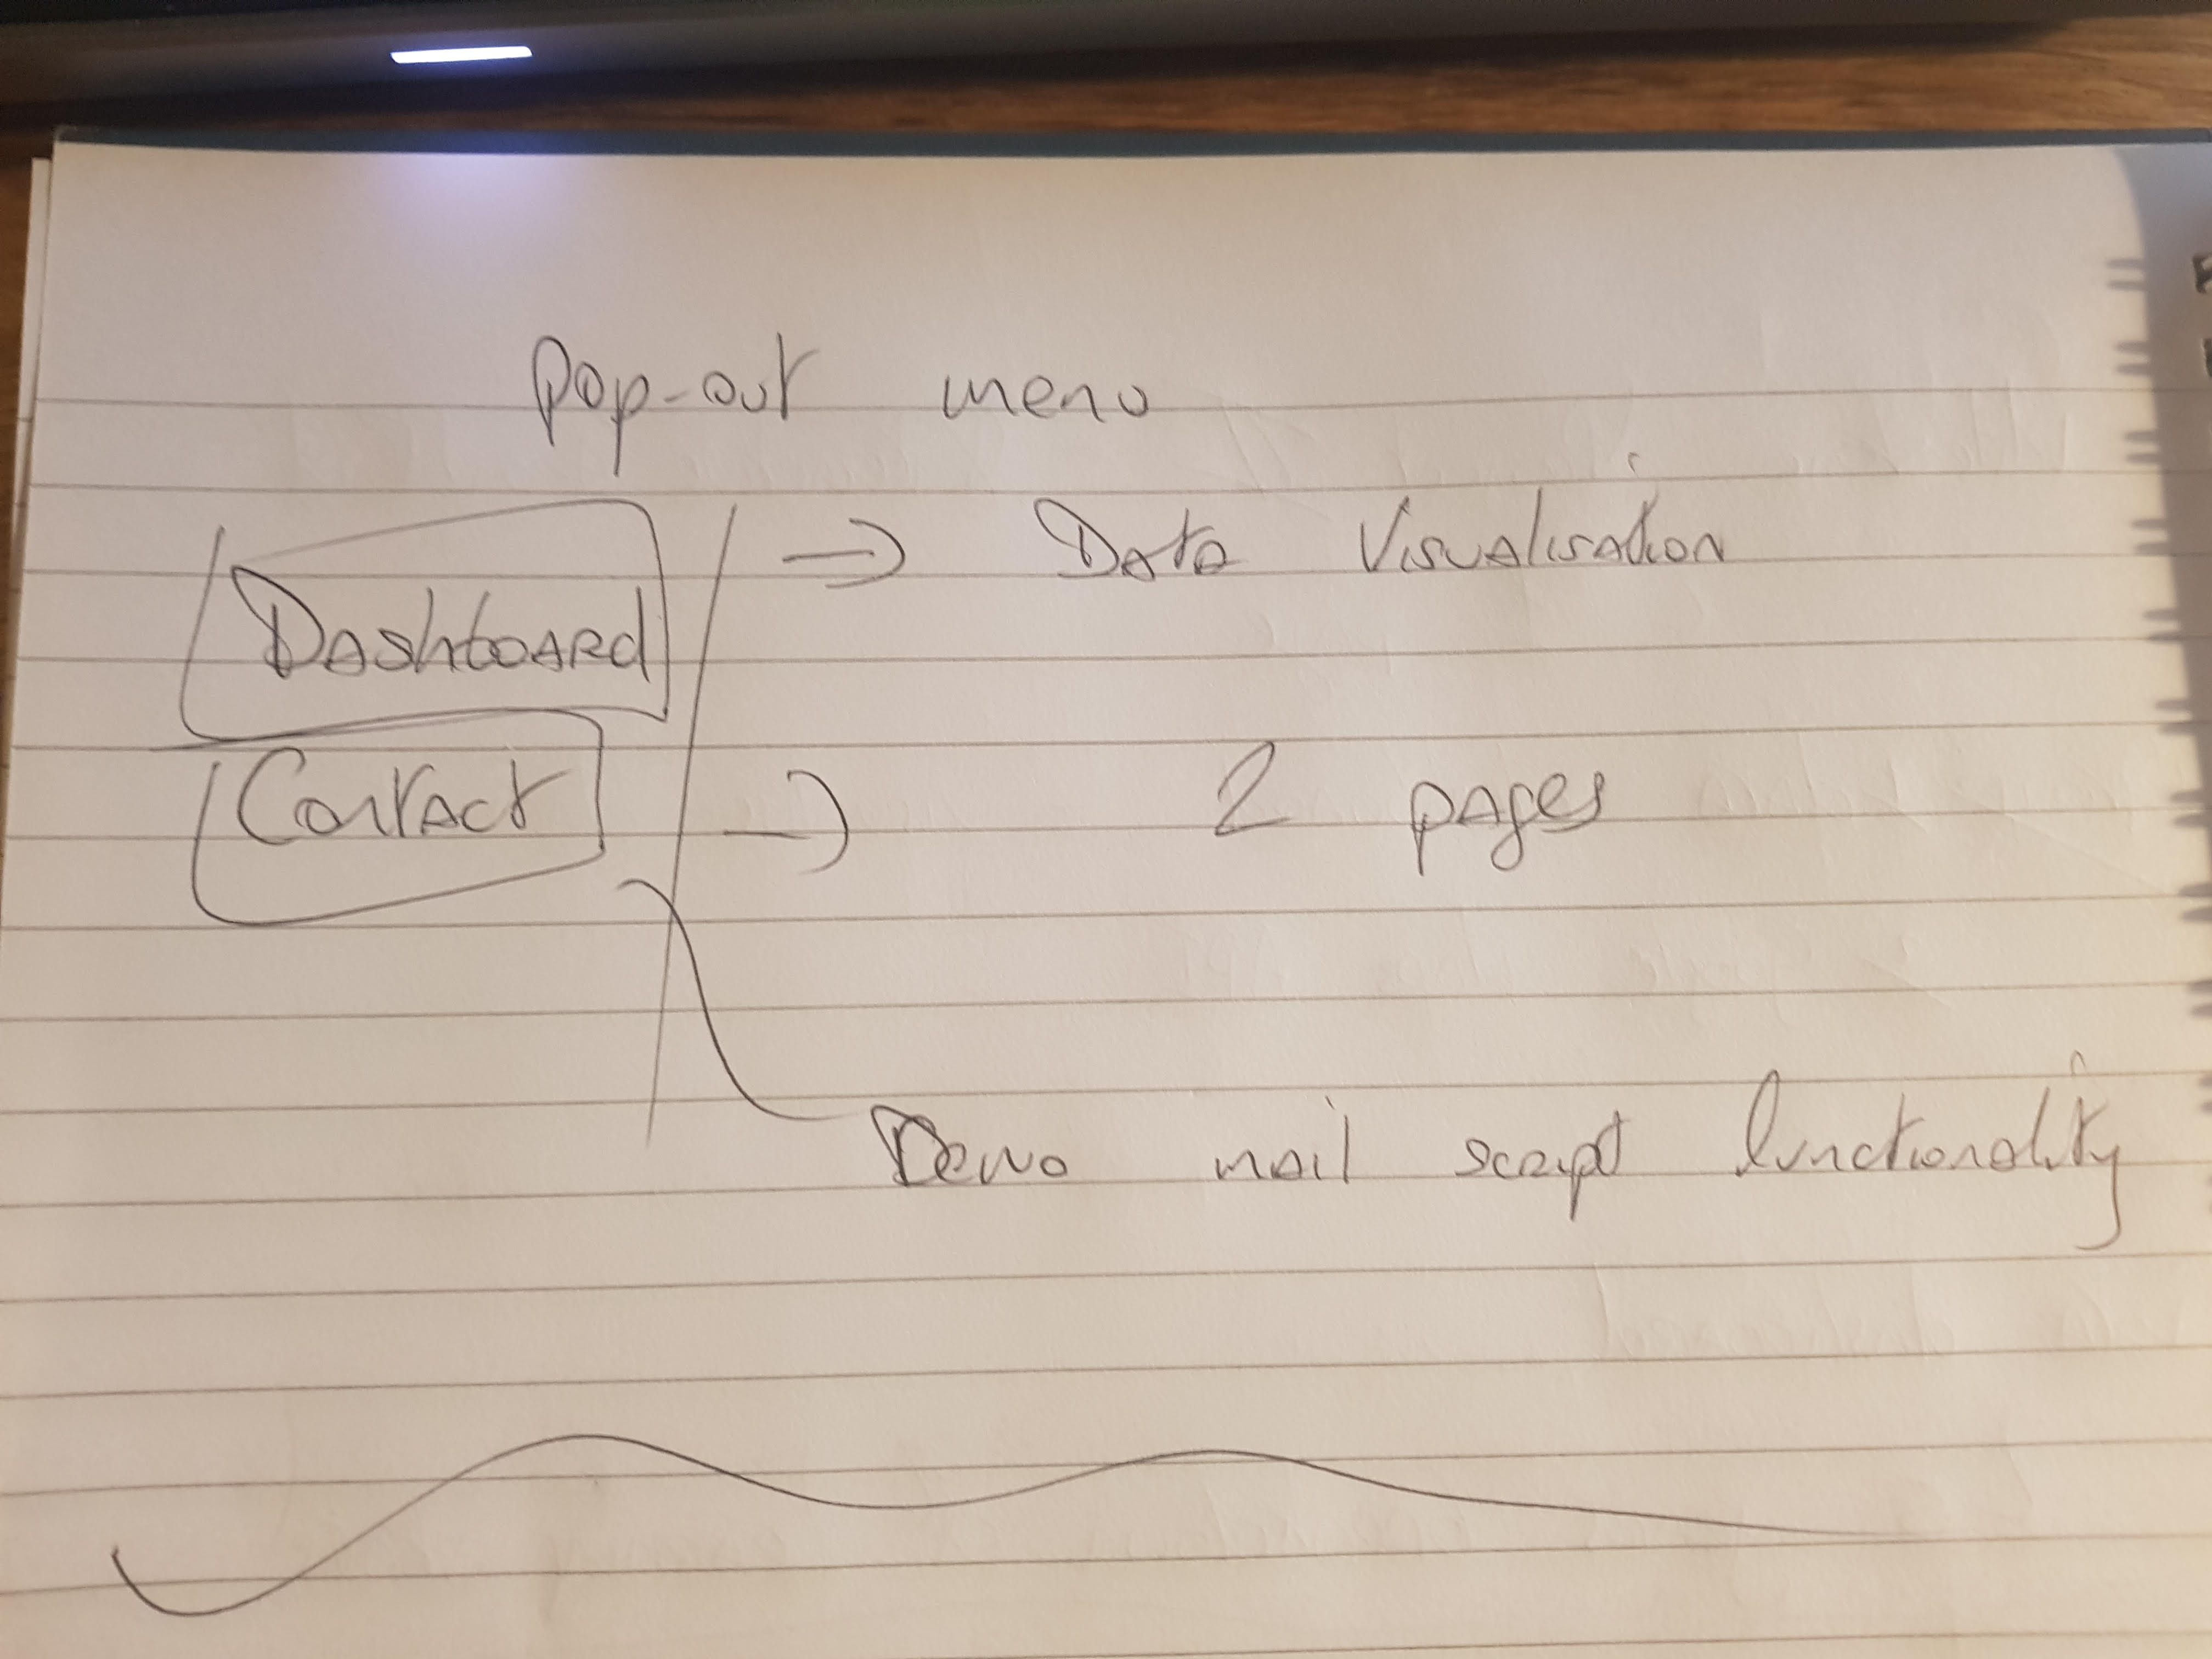 Pop-out menu
Dashboard → Data Visualisation
Contact → 2 pages
Demo mail script functionality